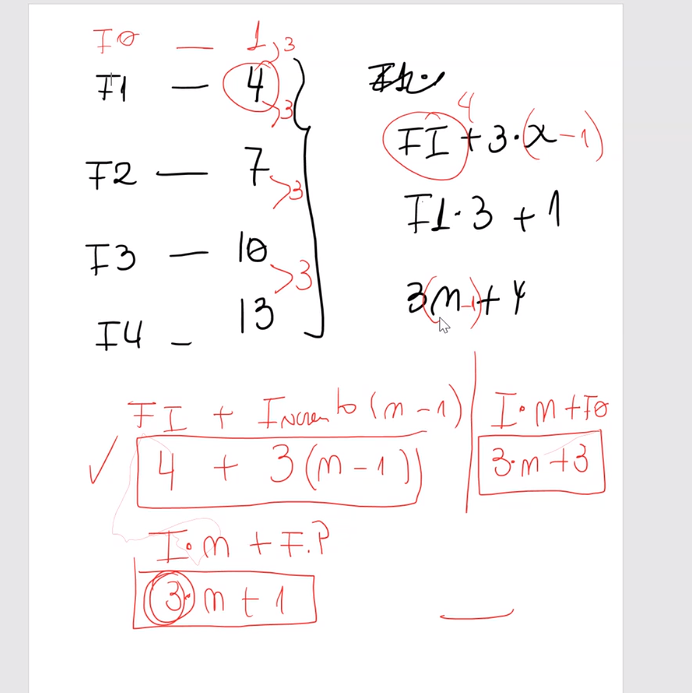 F0 — 1 > 3
F1 — 4 > 3
F2 — 7 > 3
F3 — 10 > 3
F4 - 13
4
FI + 3·(x-1)
F1·3 + 1
3(n-1) + 4
FI + Incremento (n-1)
✓ 4 + 3(n-1)
I·n + F0
3·n+3
I·n + F.P
3·n + 1